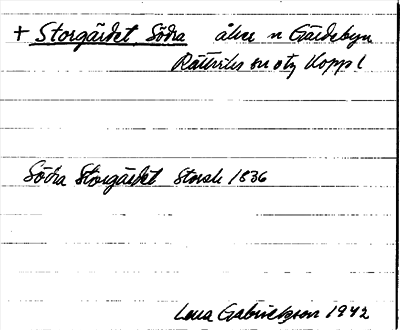 + Storgärdet, Södra åker n Gärdebyn
Rättviks sn
Södra Storgärdet Storsk 1836
Lena Gabrielsson 1942